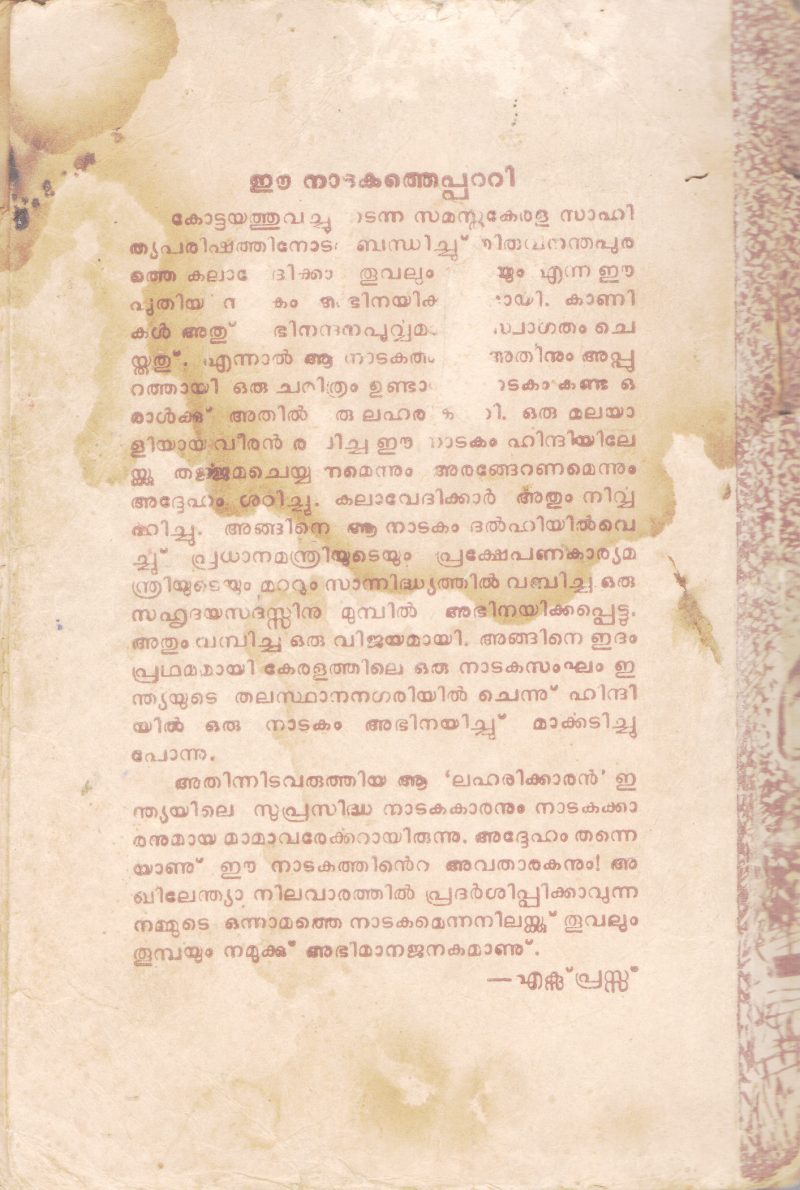 ഈ നാടകത്തെപ്പററി
കോട്ടയത്തുവച്ചു നടന്ന സമസ്തകേരള സാഹി
ത്യപരിഷത്തിനോട ബന്ധിച്ച് തിരുവനന്തപുര
ത്തെ തൂവലും എന്ന ഈ
പുതിയ കാണി
കൾ അതു് സ്വാഗതം ചെ
യ്തതു്. എന്നാൽ ആ അതിനും അപ്പു
റത്തായി ഒരു ചരിത്രം കണ്ട ഒ
രാൾക്കു് അതിൽ ലഹര ഒരു മലയാ
ളിയായ വീരൻ ഈ നാടകം ഹിന്ദിയിലേ
യ്ക്കു തർജ്ജമചെയ്യ ണമെന്നും അരങ്ങേറണമെന്നും
അദ്ദേഹം ശഠിച്ചു. കലാവേദിക്കാർ അതും നിർവ്വ
ഹിച്ചു. അങ്ങിനെ ആ നാടകം ദൽഹിയിൽവെ
ച്ചു് പ്രധാനമന്ത്രിയുടെയും പ്രക്ഷേപണകാര്യമ
ന്ത്രിയുടെയും മററും സാന്നിദ്ധ്യത്തിൽ വമ്പിച്ച ഒരു
സഹൃദയസദസ്സിനു മുമ്പിൽ അഭിനയിക്കപ്പെട്ടു.
അതും വമ്പിച്ച ഒരു വിജയമായി. അങ്ങിനെ ഇദം
പ്രഥമമായി കേരളത്തിലെ ഒരു നാടകസംഘം ഇ
ന്ത്യയുടെ തലസ്ഥാനനഗരിയിൽ ചെന്നു് ഹിന്ദി
യിൽ ഒരു നാടകം അഭിനയിച്ചു് മാക്കടിച്ചു
പോന്നു.
അതിന്നിടവരുത്തിയ ആ ‘ലഹരിക്കാരൻ’ ഇ
ന്ത്യയിലെ സുപ്രസിദ്ധ നാടകകാരനും നാടകക്കാ
രനുമായ മാമാവരേർക്കറായിരുന്നു. അദ്ദേഹം തന്നെ
യാണു് ഈ നാടകത്തിൻെറ അവതാരകനും! അ
ഖിലേന്ത്യാ നിലവാരത്തിൽ പ്രദർശിപ്പിക്കാവുന്ന
നമ്മുടെ ഒന്നാമത്തെ നാടകമെന്നനിലയ്ക്കു് തൂവലും
തൂമ്പയും നമുക്കു് അഭിമാനജനകമാണു്.
—എക്സ്പ്രസ്സ്